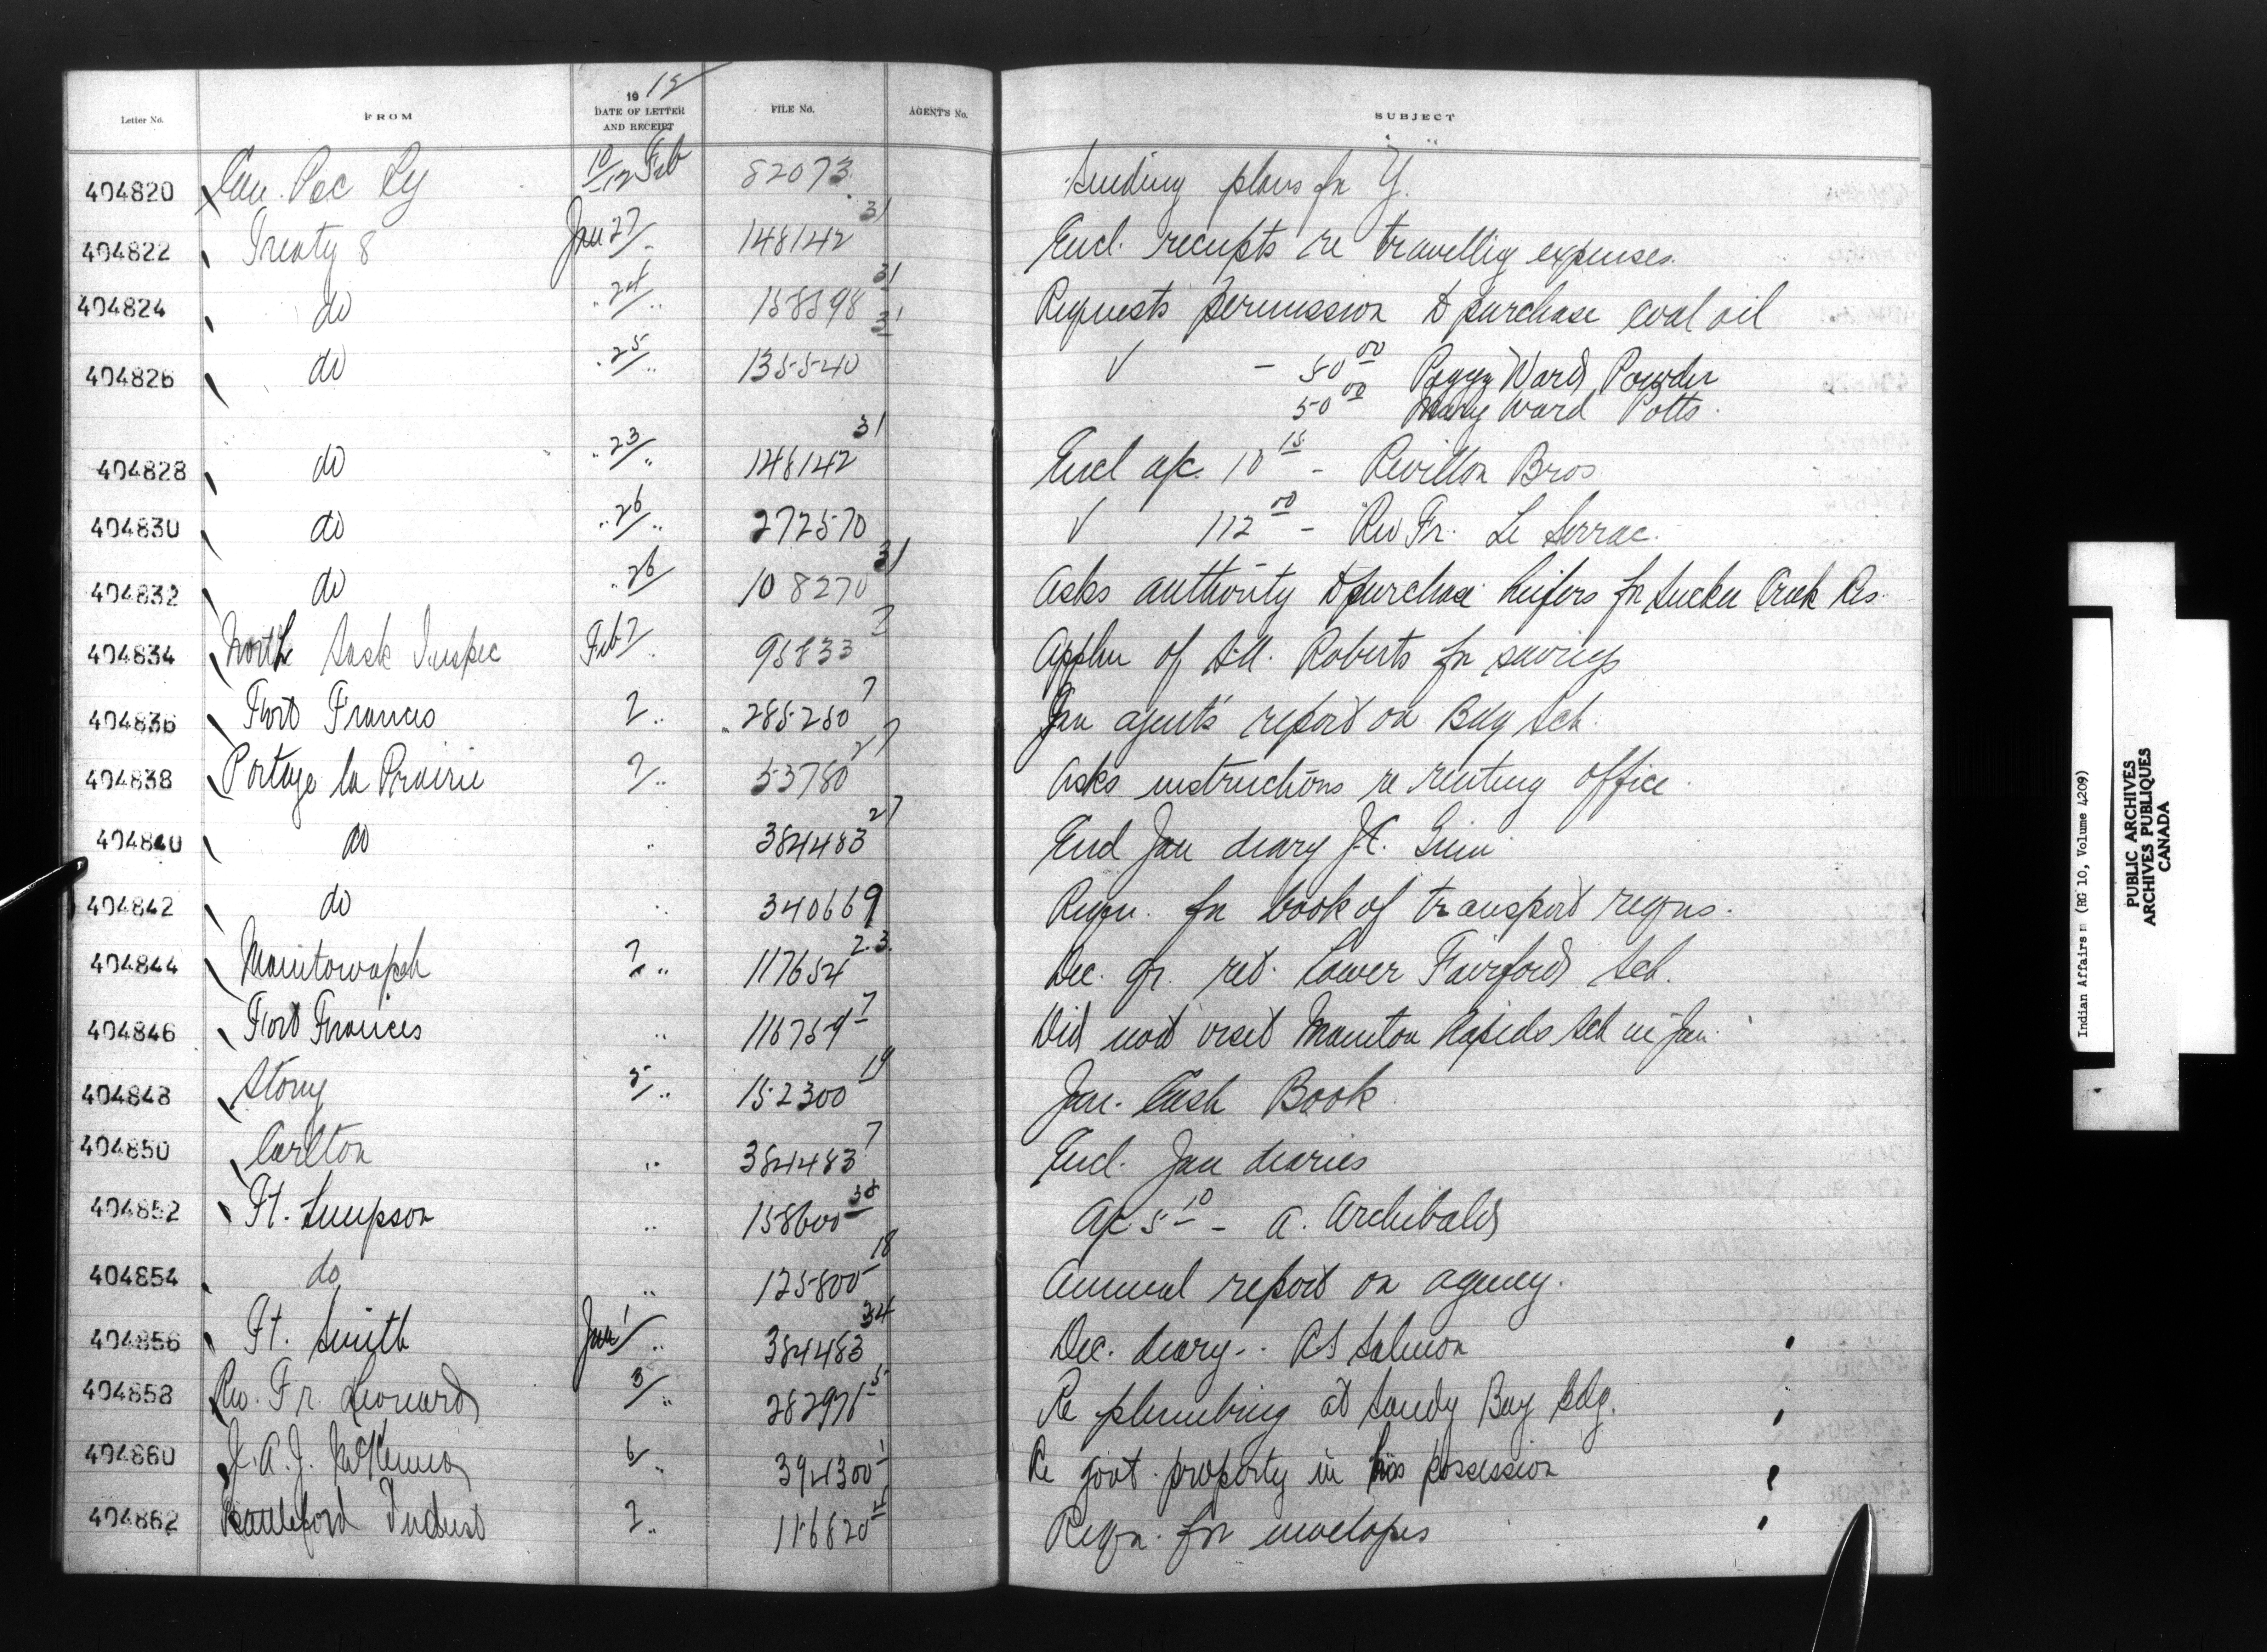 Letter No. FROM 1912 DATE OF LETTER AND RECEIPT FILE No. AGENT'S No. SUBJECT
404820 Can. Pac Ry 10/12 Feb 82073 Sending plans for Y.
404822 Treaty 8 Jan 27/- 148142 31 Encl. receipts re travellig expenses.
404824 do " 24/" 158598 31 Requests permission to purchase coal oil
404826 do " 25/" 135540 31 √ - 50 00 Peggy Ward Powder
50 00 Mary Ward Potts.
404828 do " 23/" 148142 31 Encl a/c. 10 15 - Revillon Bros
404830 do " 26/" 272570 √ 112 00 - Rev Fr. Le Serrac.
404832 do " 26/ 108270 31 Asks authority to purchase heifers for Sucker Creek Res.
404834 North Sask Inspec Feb 7/ 95833 Appln of Roberts for
404836 Fort Francis 7/" 285250 7 Jan agent's report on Bdg Sch.
404838 Portage la Prairie 7/" 53780 27 Asks instructions re renting office.
404840 do " 384483 27 Encl Jan diary J.C. Ginn
404842 do " 340669 Reqn. for book of transport reqns.
404844 Manitowapah 7/" 117654 2.3. Dec. qr. ret. Lower Fairford Sch.
404846 Fort Francis " 116759 7 Did not visit Manitou Rapids Sch in Jan.
404848 Stony 5/" 152300 19 Jan. Cash Book
404850 Carlton " 384483 7 Encl. Jan diaries
404852 Ft. Simpson " 158600 38 A/c 5 10 - A. Archibald
404854 do " 125800 18 Annual report on agency.
404856 Ft. Smith Jan 1/" 384483 34 Dec. diary - RS Salmon
404858 Rev. Fr Leonard 5/" 282976 5 Re plumbing at Sandy Bay Bdg.
404860 J.A.J. McKenna 6/" 394300 1 Re govt. property in his possession
404862 Battleford Indust 7/" 116820 Reqn. for envelopes
Indian Affairs (RG 10, Volume 4209)
PUBLIC ARCHIVES
ARCHIVES PUBLIQUES
CANADA